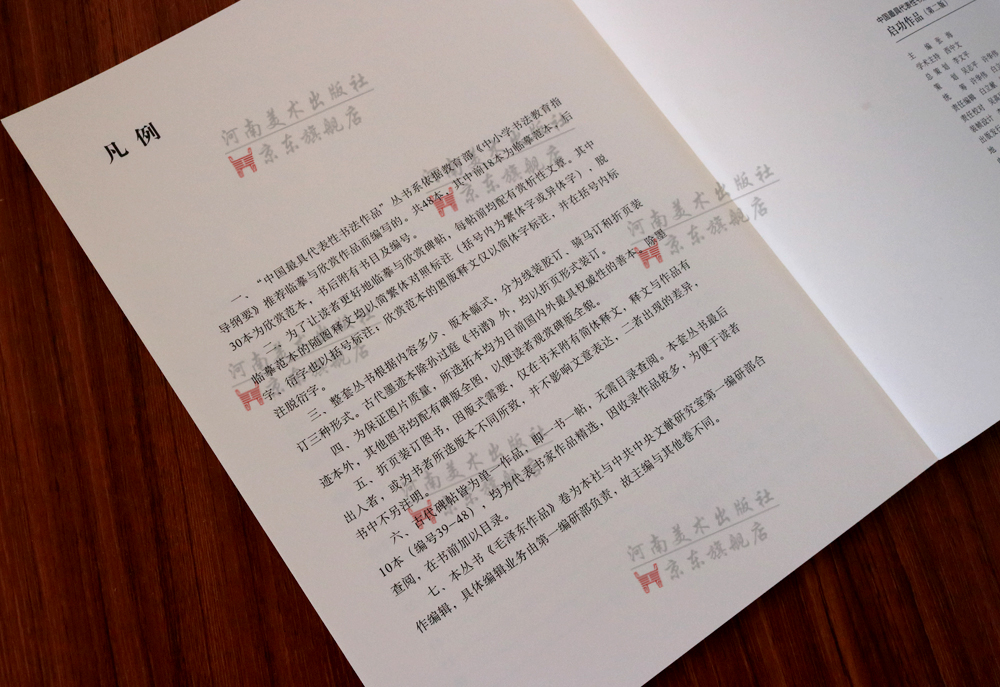 凡例
一、“中国最具代表性书法作品”丛书系依据教育部《中小学书法教育指
导纲要》推荐临摹与欣赏作品而编写的。共48本，其中前18本为临摹范本，后
30本为欣赏范本，书后附有书目及编号。
二、为了让读者更好地临摹与欣赏碑帖，每帖前均配有赏析性文章。其中
临摹范本的随图释文均以简繁体对照标注（括号内为繁体字或异体字），脱
字、衍字也以括号标注，欣赏范本的图版释文仅以简体字标注，并在括号内标
注脱衍字。
三、整套丛书根据内容多少、版本幅式，分为线装胶订、骑马订和折页装
订三种形式。古代墨迹本除孙过庭《书谱》外，均以折页形式装订。
四、为保证图片质量，所选拓本均为目前国内外最具权威性的善本，除墨
迹本外，其他图书均配有碑版全图，以便读者观赏碑版全貌。
五、折页装订图书，因版式需要，仅在书末附有简体释文，释文与作品有
出入者，或为书者所选版本不同所致，并不影响文章表达，二者出现的差异，
书中不另注明。
六、古代碑帖皆为单一作品，即一书一帖，无需目录查阅。本套丛书最后
10本（编号39-48），均为代表书家作品精选，因收录作品较多，为便于读者
查阅，在书前加以目录。
七、本丛书《毛泽东作品》卷为本社与中共中央文献研究室第一编研部合
作编辑，具体编辑业务由第一编研部负责，故主编与其他卷不同。
中国最具代表性
启功作品（第二版）
主 编 张 海
学术主持 西中文
总策划 李文平
策 划 吴志平 许华伟
统 筹 许华伟 白立
责任编辑 白立献
责任校对 吴
装帧设计
出版发
地
河南美术出版社
京东旗舰店
河南美术出版社
京东旗舰店
河南美术出版社
京东旗舰店
河南美术出版社
京东旗舰店
河南美术出版社
京东旗舰店
河南美术出版社
京东旗舰店